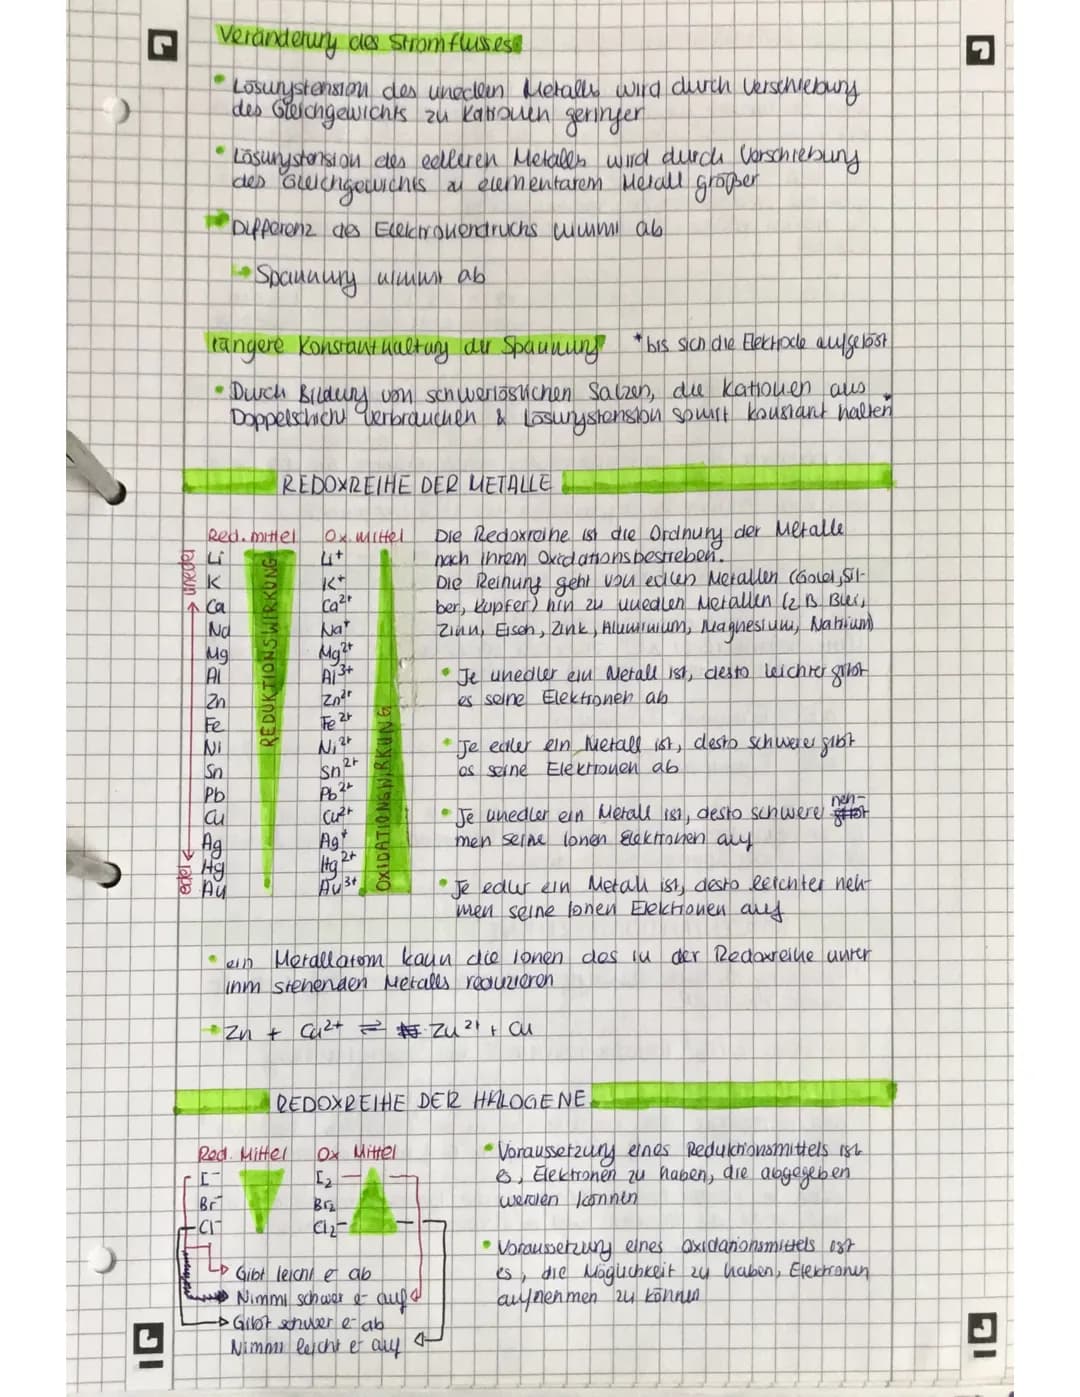 Veränderung des Stromflusses
• Lösungstension des unedlen Metalls wird durch Verschiebung
des Gleichgewichts zu Kationen geringer
• Lösungstension des edleren Metalls wird durch Verschiebung
des Gleichgewichts zu elementarem Metall größer
Differenz des Elektronendrucks nimmt ab
Spannung nimmt ab
längere Konstanthaltung der Spannung *bis sich die Elektrode aufgelöst
• Durch Bildung von schwerlöslichen Salzen, die Kationen aus
Doppelschicht verbrauchen & Lösungstension somit konstant halten *
REDOXREIHE DER METALLE
Red. mittel Ox. mittel
uneder
edel
Li Li+
K K+
Ca Ca2+
Na Na+
Mg Mg2+
Al Al3+
Zn Zn2+
Fe Fe2+
Ni Ni2+
Sn Sn2+
Pb Pb2+
Cu Cu2+
Ag Ag+
Hg Hg2+
Au Au3+
REDUKTIONSWIRKUNG
OXIDATIONSWIRKUNG
Die Redoxreihe ist die Ordnung der Metalle
nach ihrem Oxidationsbestreben.
Die Reihung geht von edlen Metallen (Gold, Sil-
ber, Kupfer) hin zu unedlen Metallen (z.B. Blei,
Zinn, Eisen, Zink, Aluminium, Magnesium, Natrium)
• Je unedler ein Metall ist, desto leichter gibt
es seine Elektronen ab
• Je edler ein Metall ist, desto schwerer gibt
es seine Elektronen ab
• Je unedler ein Metall ist, desto schwerer neh-
men seine Ionen Elektronen auf
• Je edler ein Metall ist, desto leichter neh-
men seine Ionen Elektronen auf
• ein Metallatom kann die Ionen des in der Redoxreihe unter
ihm stehenden Metalls reduzieren
Zn + Cu2+ ⇌ Zn2+ + Cu
REDOXREIHE DER HALOGENE
Red. Mittel Ox Mittel
I- I2
Br- Br2
Cl- Cl2
Gibt leicht e- ab
Nimmt schwer e- auf
Gibt schwer e- ab
Nimmt leicht e- auf
• Voraussetzung eines Reduktionsmittels ist
es, Elektronen zu haben, die abgegeben
werden können
• Voraussetzung eines Oxidationsmittels ist
es, die Möglichkeit zu haben, Elektronen
aufnehmen zu können